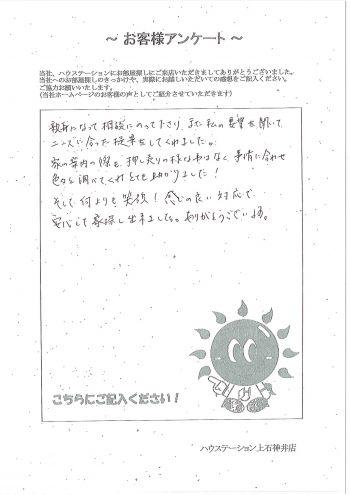 ～ お客様アンケート ～
当社、ハウステーションにお部屋探しにご来店いただきましてありがとうございました。
当社へのお部屋探しのきっかけや、実際にお話しいただいての感想をご記入ください。
ご協力お願いします。
(当社ホームページのお客様の声としてご紹介させていただきます)
親身になって相談にのって下さり、また私の要望を聞いて
ニーズに合った提案をしてくれました。
家の案内の際も押し売りの様なのはなく事情に合わせ
色々と調べてくれとても助かりました!
そして何よりも笑顔!感じの良い対応で
安心して家探し出来ました。ありがとうございます。
こちらにご記入ください!
ハウステーション上石神井店